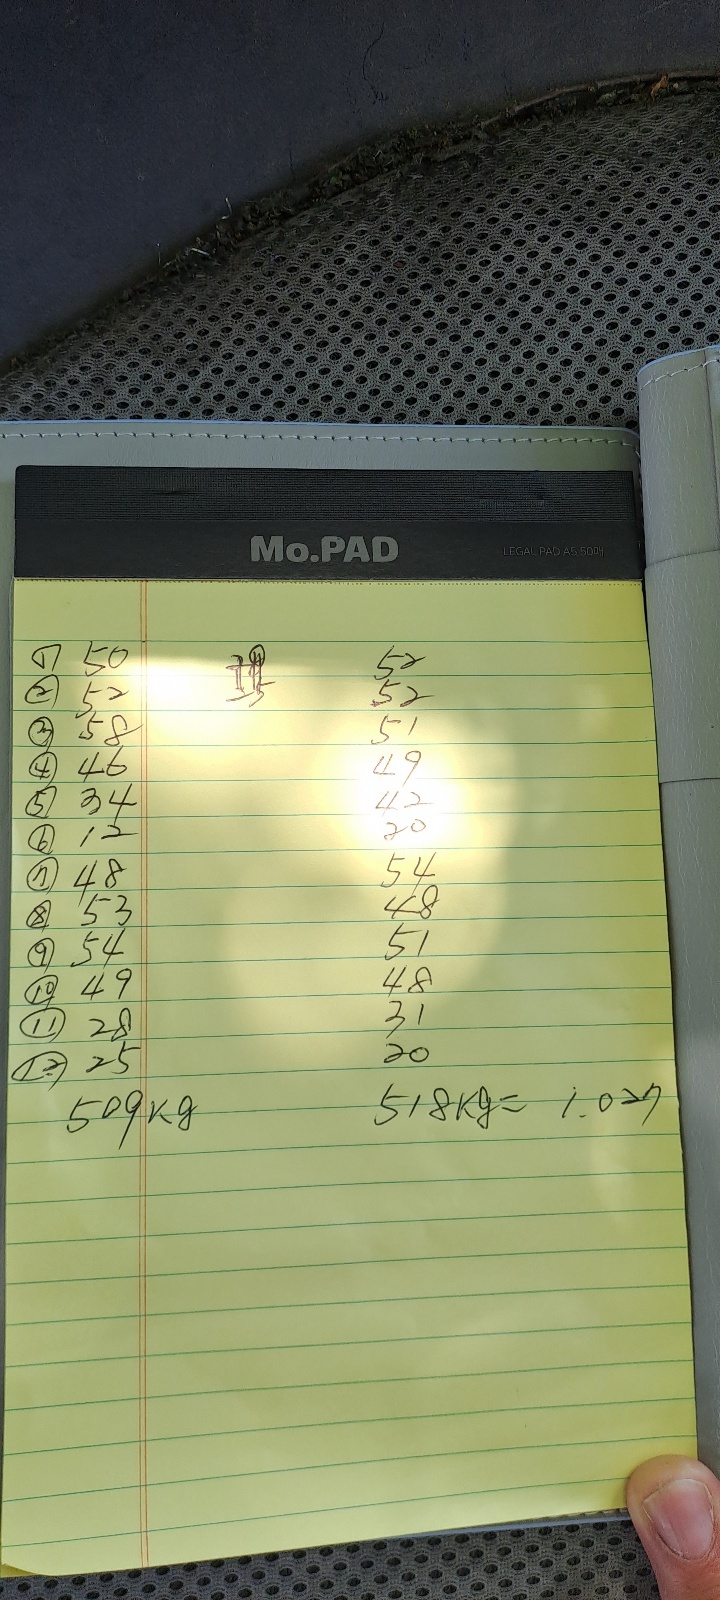 Mo.PAD
LEGAL PAD A5 5009
① 50 52
② 52 52
③ 58 51
④ 46 49
⑤ 34 42
⑥ 12 20
⑦ 48 54
⑧ 53 48
⑨ 54 51
⑩ 49 48
⑪ 28 31
⑫ 25 20
509kg 518kg= 1.027